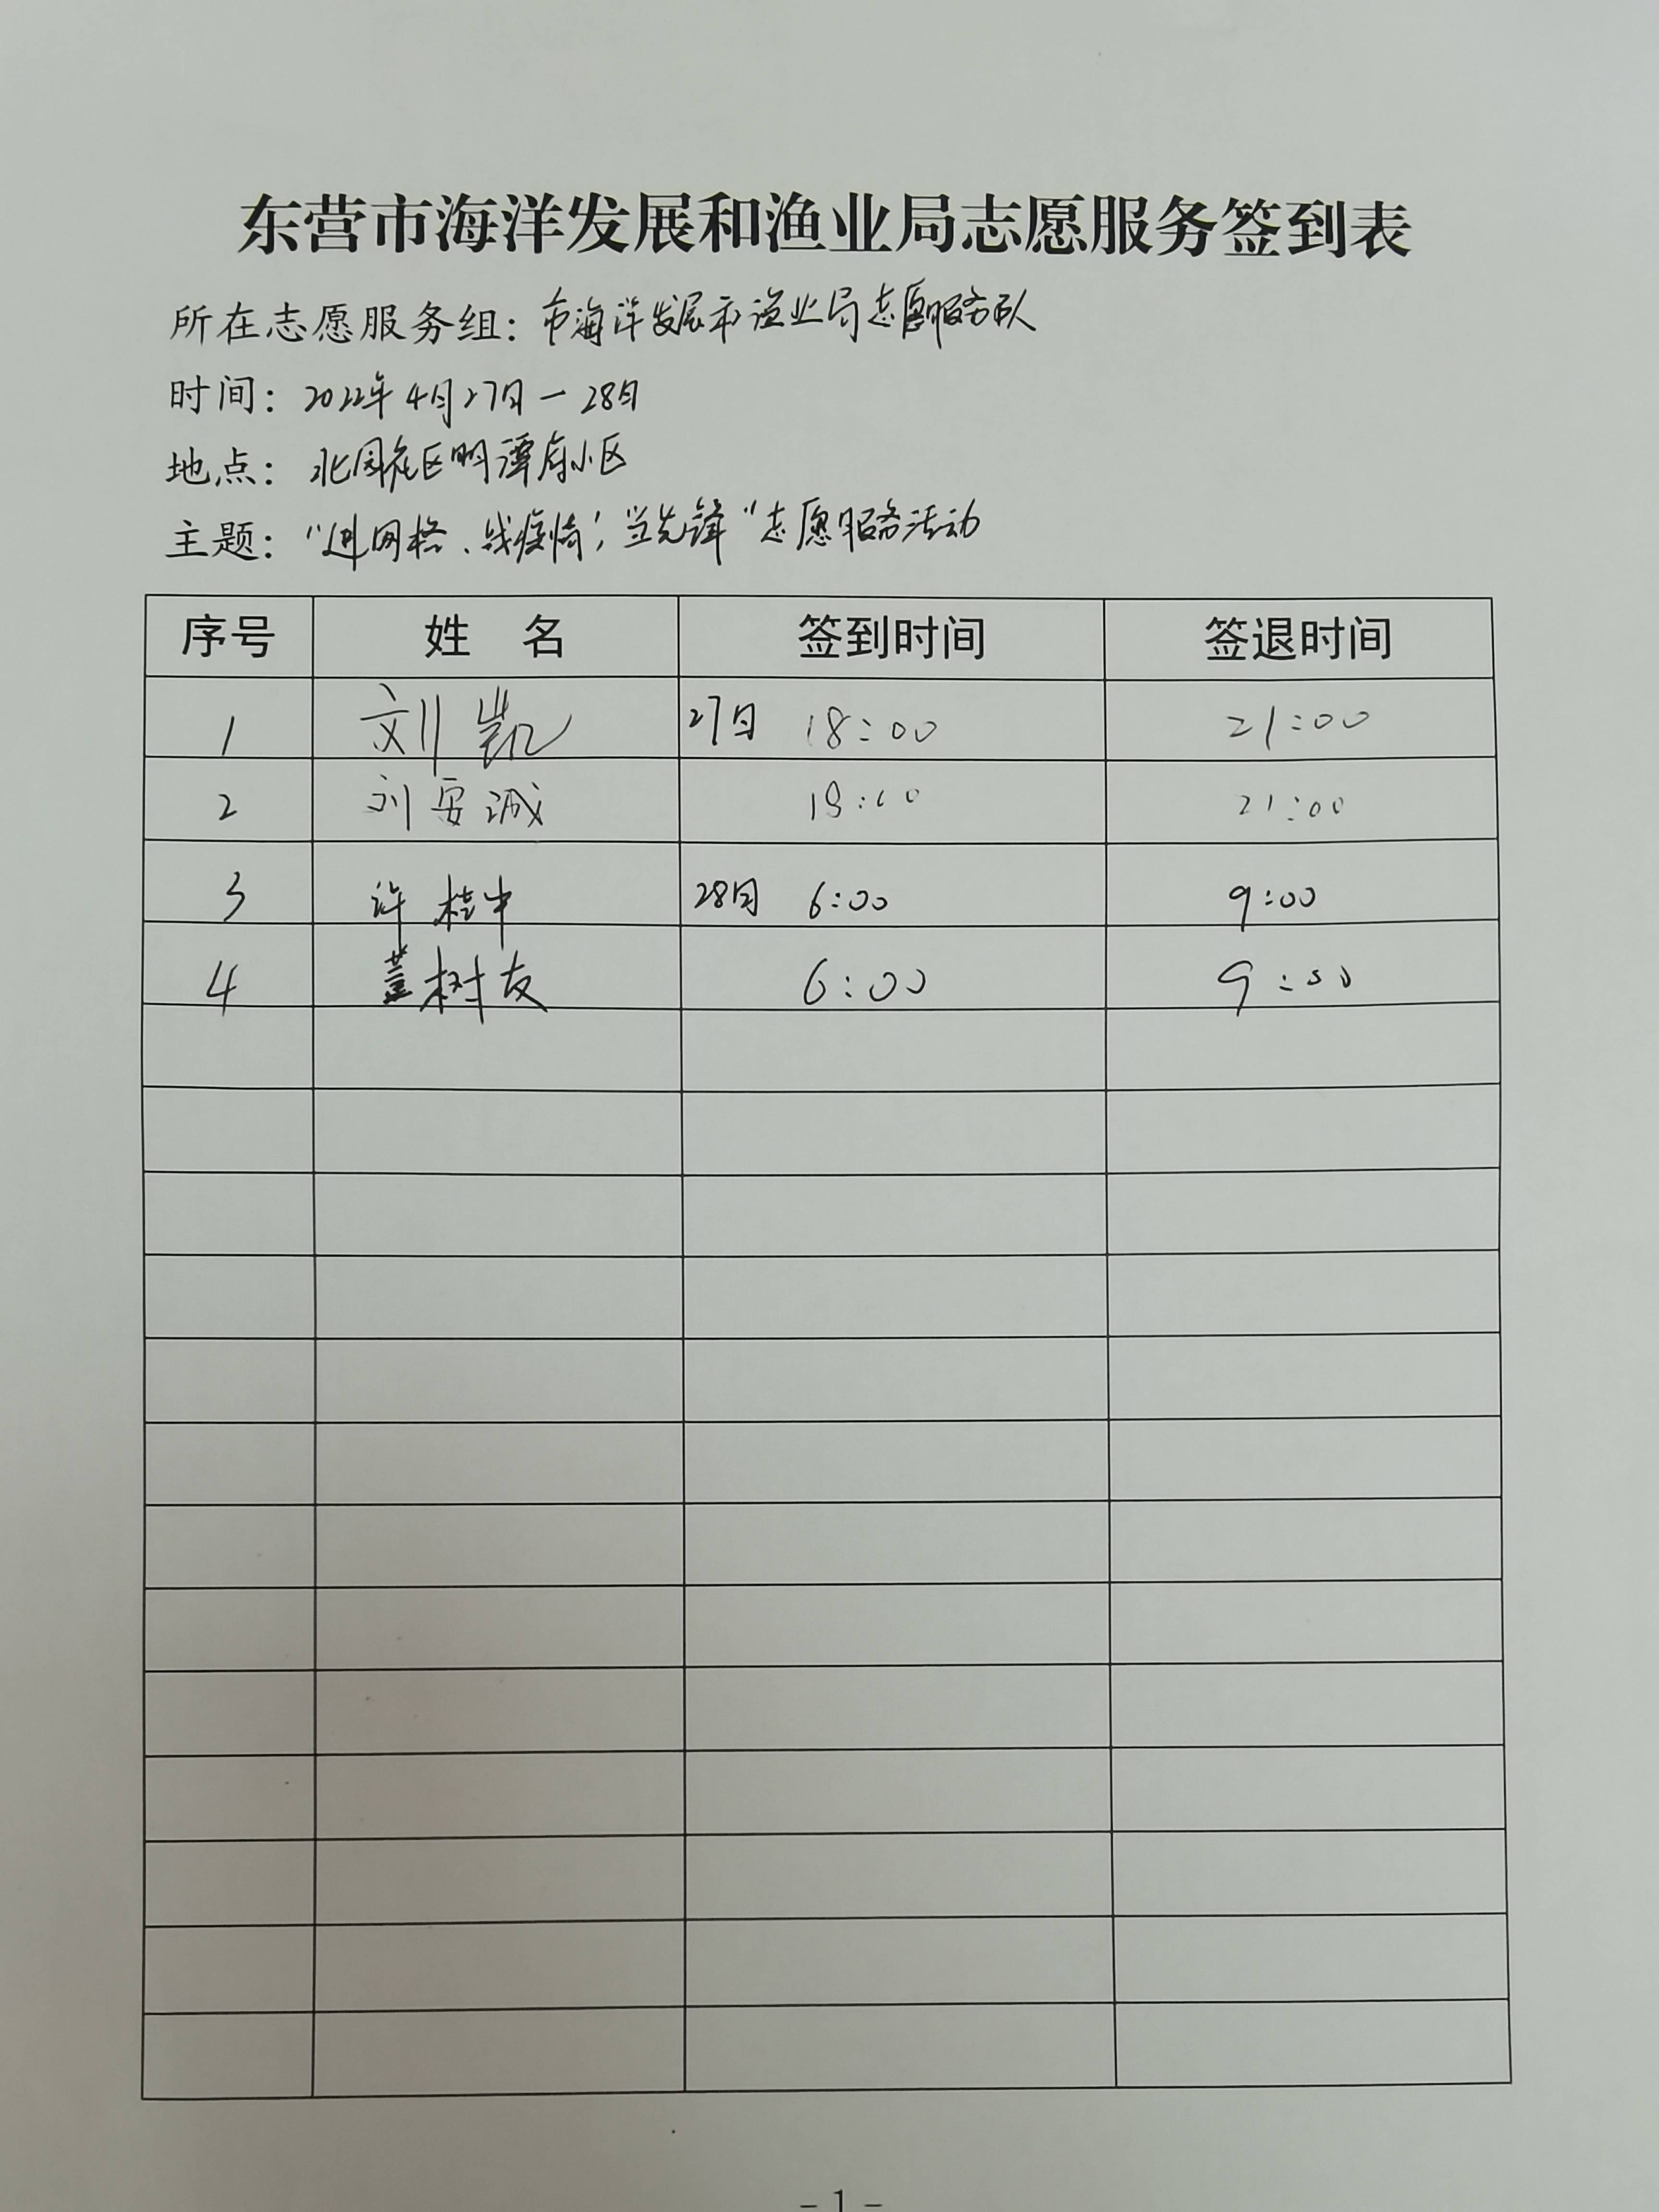 东营市海洋发展和渔业局志愿服务签到表
所在志愿服务组：市海洋发展和渔业局志愿服务队
时间：2022年4月27日一28日
地点：北园花区明潭府小区
主题：“进网格、战疫情，当先锋”志愿服务活动
序号 姓 名 签到时间 签退时间
1 刘凯 27日 18:00 21:00
2 刘安诚 18:00 21:00
3 许桂中 28日 6:00 9:00
4 盖树友 6:00 9:00
- 1 -